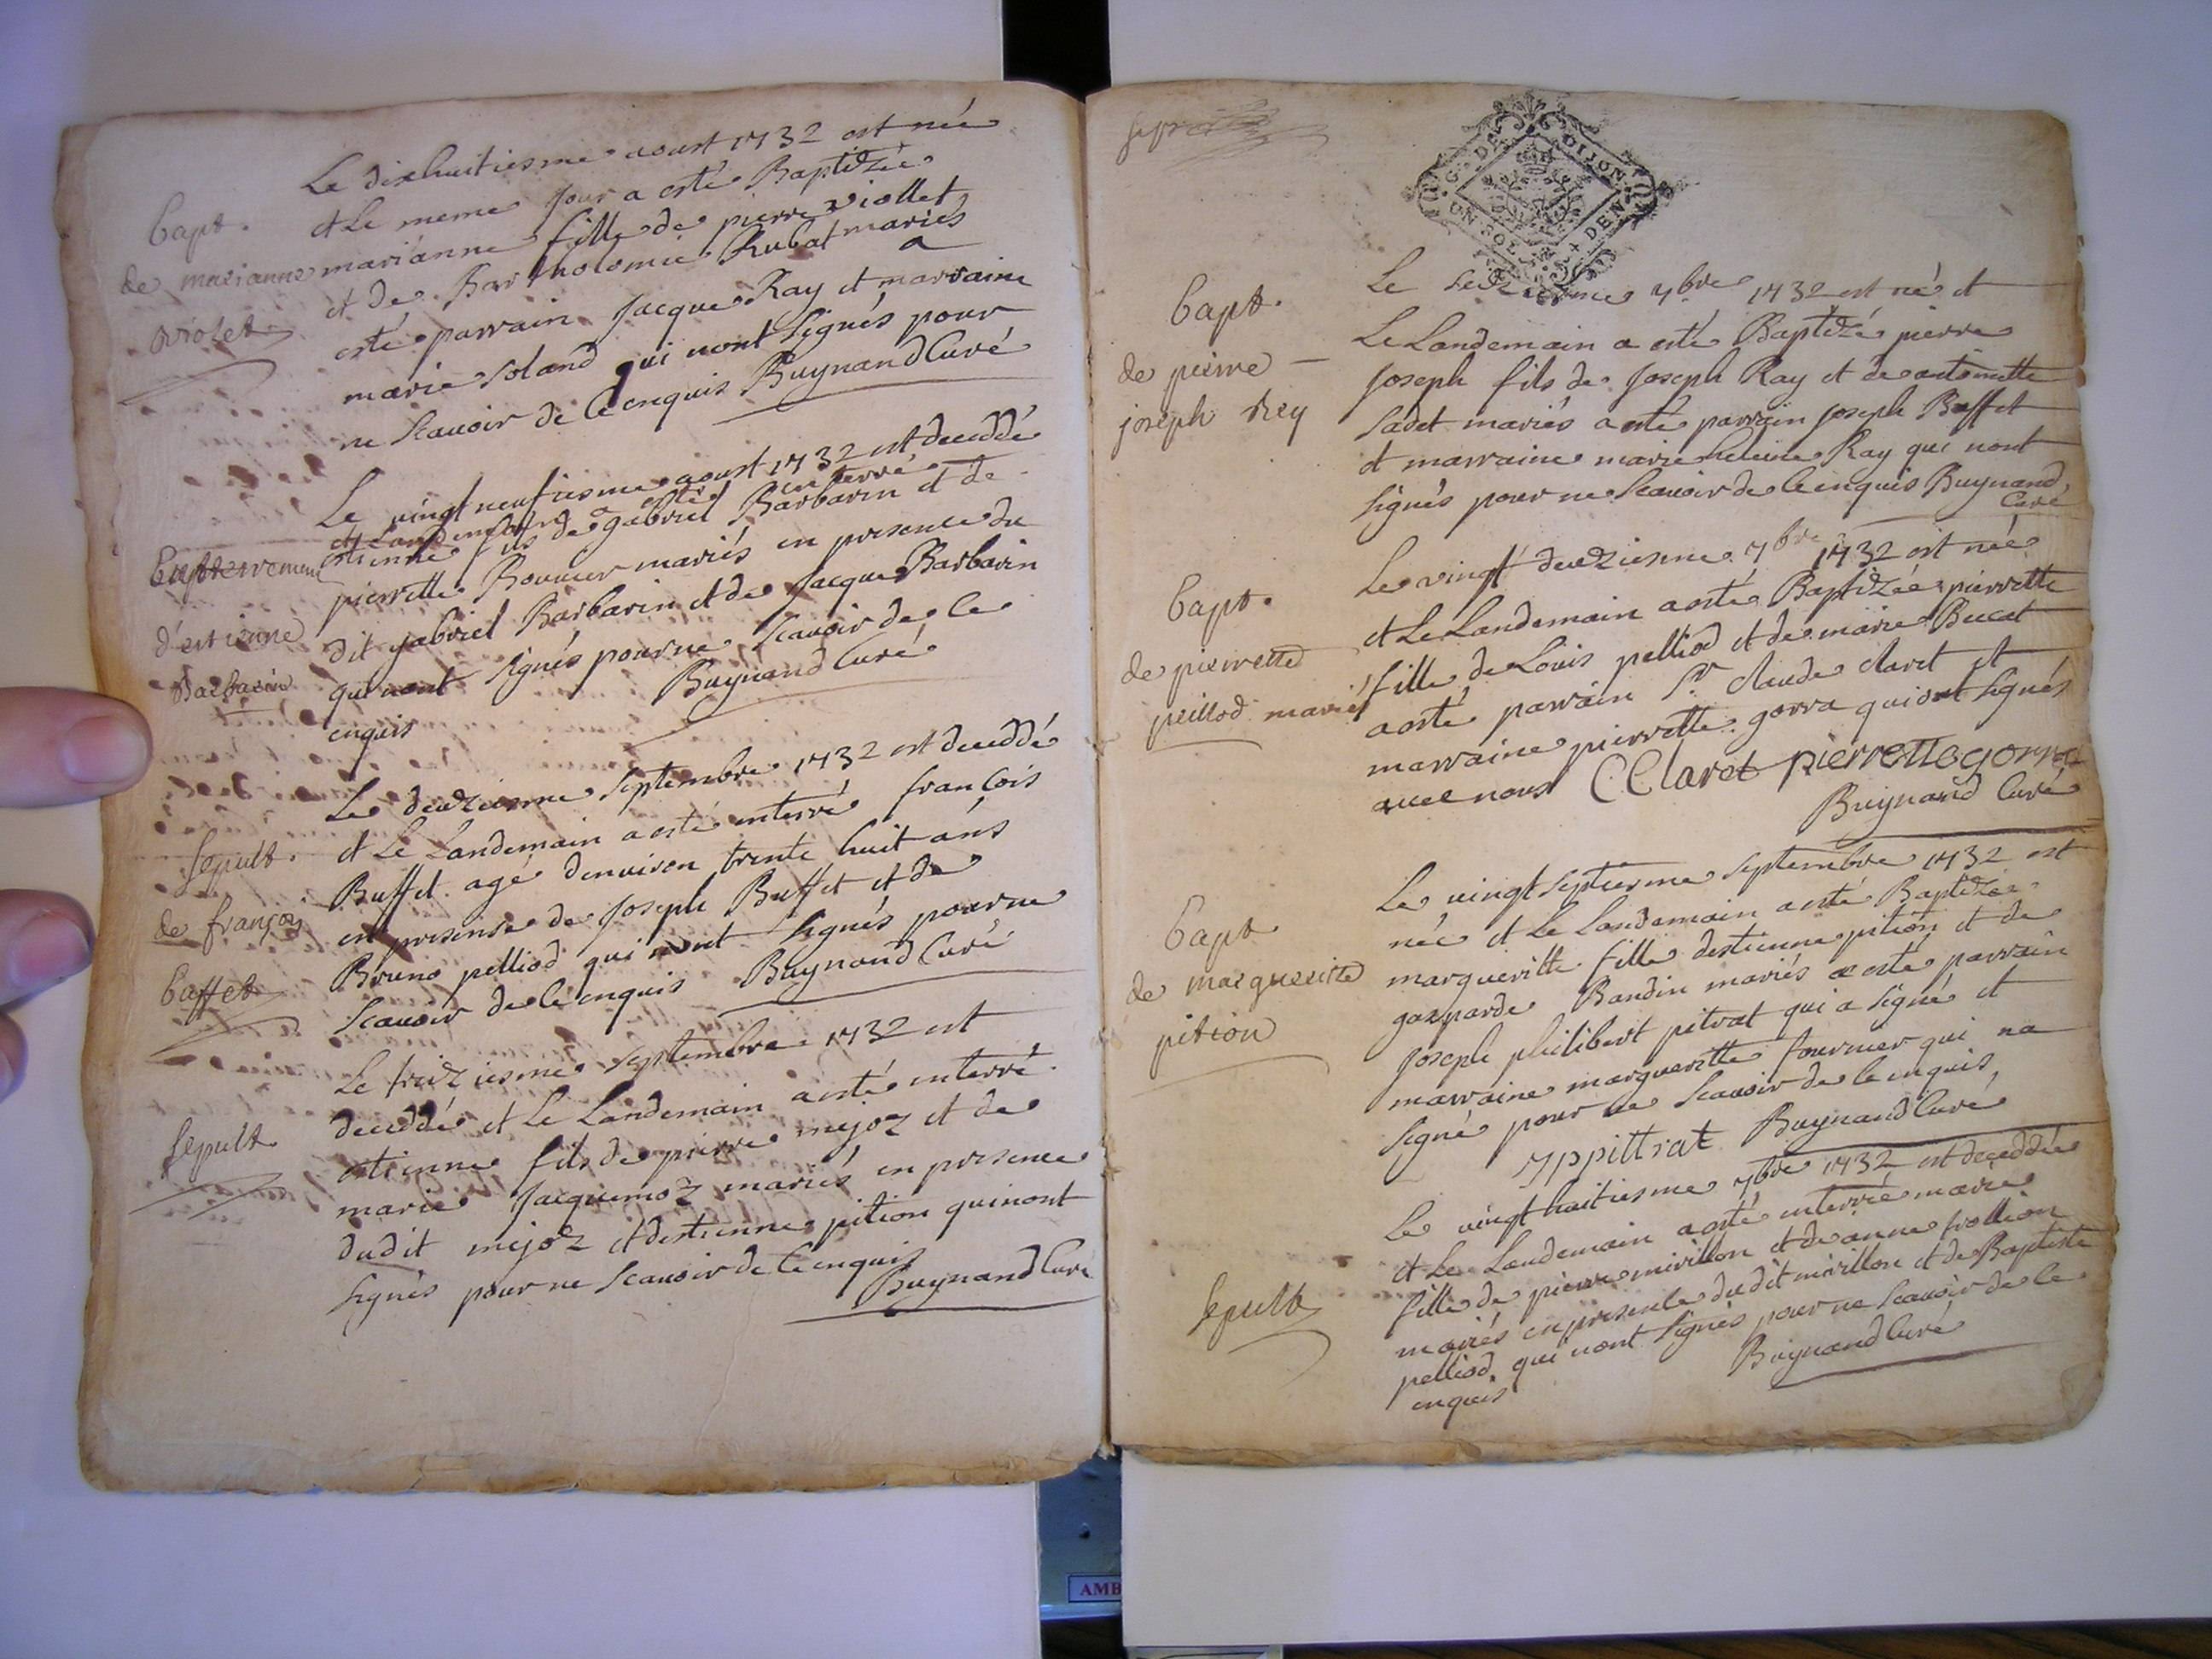 Bapt.
de marianne
violet
Le dixhuitiesme aoust 1732 est née
et Le meme Jour a esté Baptizée
marianne fille de pierre viollet
et de Bartholomie Rubat mariés a
esté parrain Jacque Ray et marraine
marie soland qui nont signés pour
ne scauoir de ce enquis Buynand Curé
enterrement
d'estienne
Barbarin
Le vingt neufiesme aoust 1732 est deceddé
et Landemain a esté enterré
estienne fils de gabriel Barbarin et de
pierrette Bouuier mariés en presence du
dit gabriel Barbarin et de Jacque Barbarin
qui nont signés pour ne scauoir de ce
enquis Buynand Curé
sepult.
de françois
buffet
Le deuziesme septembre 1732 est deceddé
et Le Landemain a esté enterré françois
Buffet agé denuiron trente huit ans
en presense de Joseph Buffet et de
Bruno pelliod qui nont signés pour ne
scauoir de ce enquis Buynand Curé
sepult
Le treiziesme septembre 1732 est
deceddé et Le Landemain a esté enterré
estienne fils de pierre mejoz et de
marie Jacquemoz mariés en presence
dudit mejoz et destienne pition qui nont
signés pour ne scauoir de ce enquis
Buynand Curé
G. DE DIJON
UN SOL DEN
Bapt.
de pierre
joseph Rey
Le seiziesme 7bre 1732 est né et
Le Landemain a esté Baptizé pierre
Joseph fils de Joseph Ray et de antoinette
sadet mariés a esté parrain Joseph Buffet
et marraine marie heleine Ray qui nont
signés pour ne scauoir de ce enquis Buynand
Curé
Bapt.
de pierrette
peillod
Le vingt deuziesme 7bre 1732 est née
et Le Landemain a esté Baptizée pierrette
fille de Louis pelliod et de marie Bucat
mariés a esté parrain Sr. claude claret et
marraine pierrette gorra qui ont signés
auec nous CClaret pierrette gorra
Buynand Curé
Bapt
de margueritte
pition
Le vingt septiesme septembre 1732 est
née et Le Landemain a esté Baptizée
margueritte fille destienne pition et de
gasparde Bandin mariés a esté parrain
Joseph philibert pitrat qui a signé et
marraine margueritte fournier qui na
signé pour ne scauoir de ce enquis,
Jppittrat Buynand Curé
sepult
Le vingt huitiesme 7bre 1732 est deceddée
et Le Landemain a esté enterrée marie
fille de pierre mirillon et de anne frollion
mariés en presence dudit mirillon et de Baptiste
pelliod qui nont signés pour ne scauoir de ce
enquis Buynand Curé
AMB